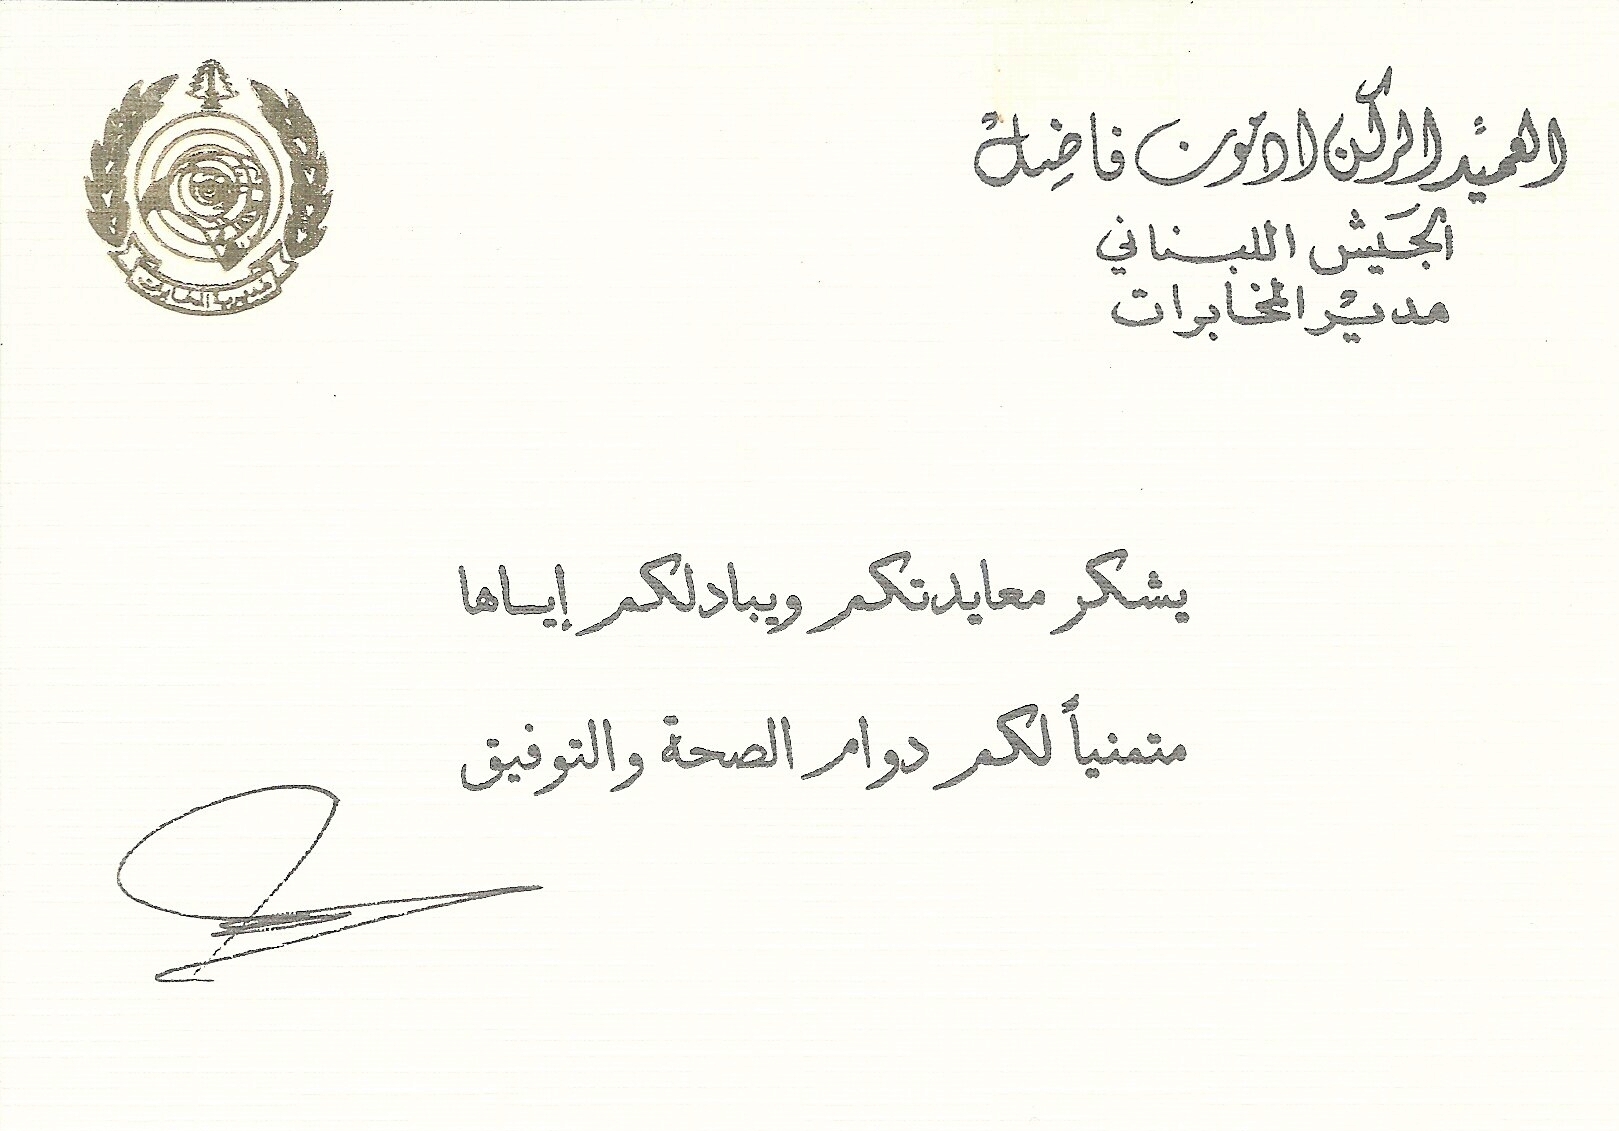 العميد الركن ادمون فاضل
الجيش اللبناني
مدير المخابرات
مديرية المخابرات
يشكر معايدتكم ويبادلكم إياها
متمنياً لكم دوام الصحة والتوفيق